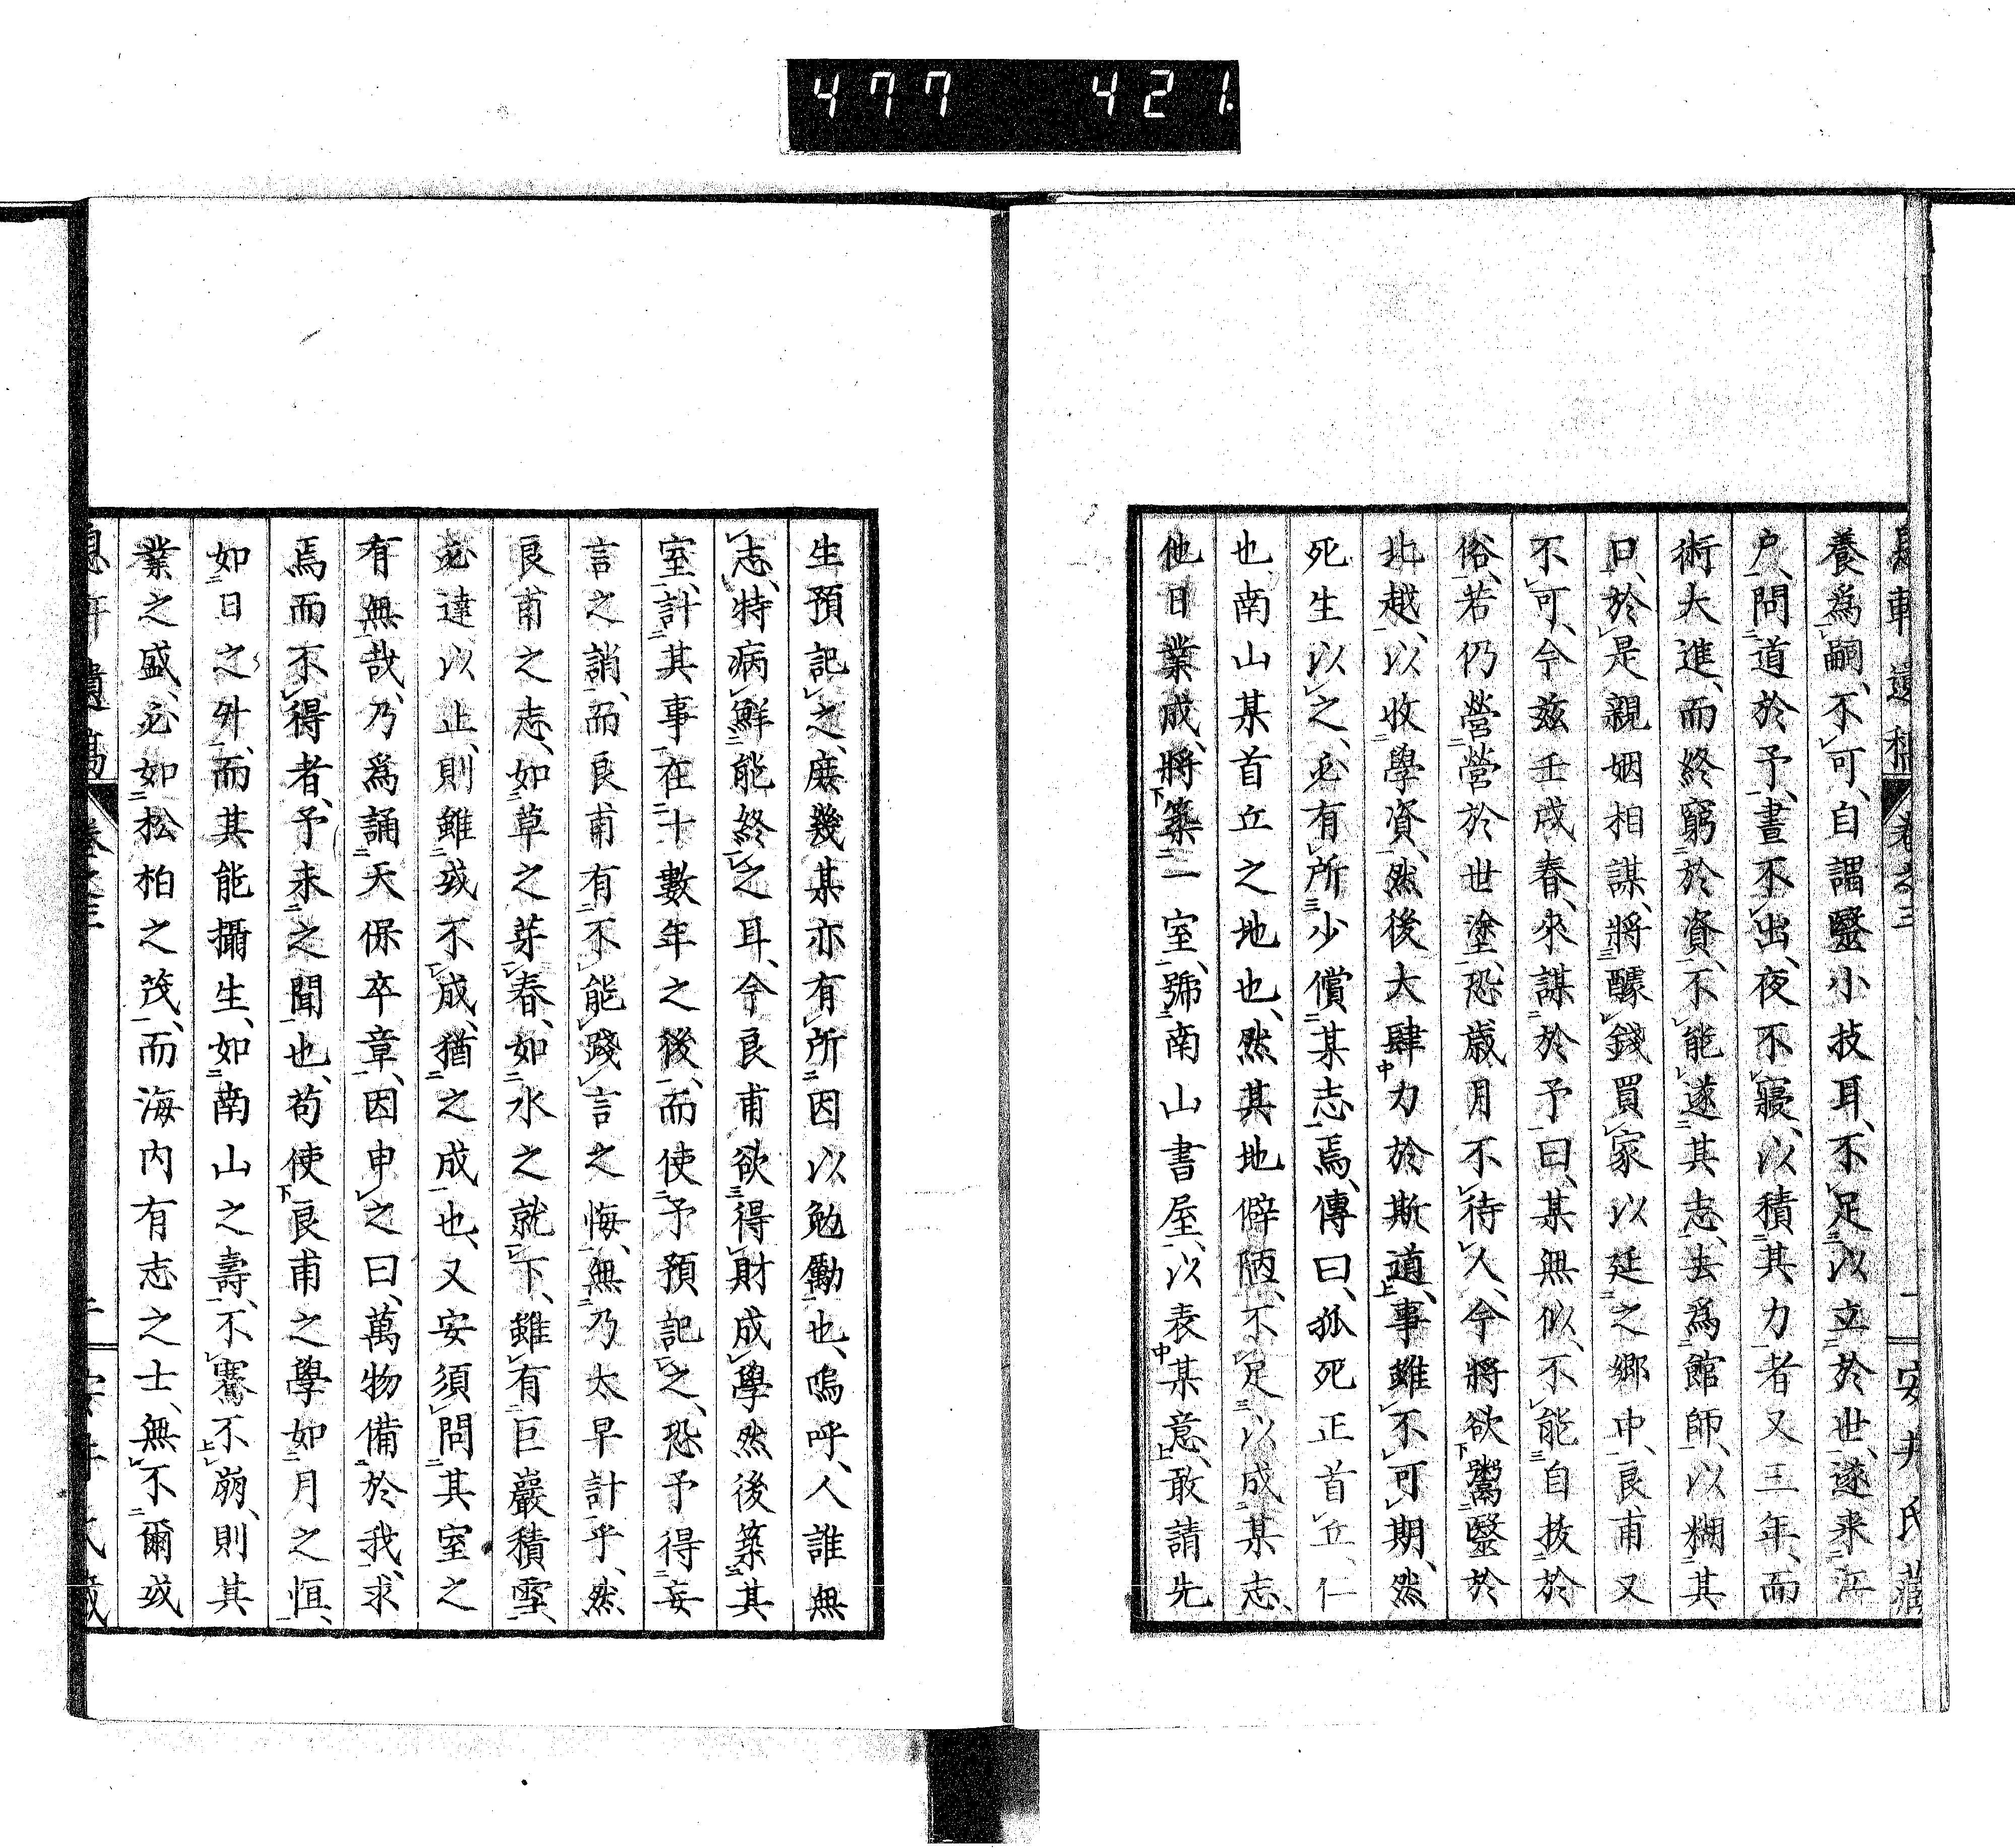 477 421.
養爲嗣、不可、自謂醫小技耳、不足以立於世、遂來江
户、問道於予、晝不出、夜不寢、以積其力者又三年、而
術大進、而終窮於資、不能遂其志、去爲館師、以糊其
口、於是親姻相謀、將醵錢買家以廷之鄉中、良甫又
不可、今茲壬戌春、來謀於予曰、某無似、不能自拔於
俗、若仍營營於世塗、恐歲月不待人、今將欲鬻醫於
北越、以收學資、然後大肆力於斯道、事雖不可期、然
死生以之、必有所少償某志焉、傳曰、狐死正首丘、仁
也、南山某首丘之地也、然其地僻陋、不足以成某志、
他日業成、將築一室、號南山書屋、以表某意、敢請先
生預記之、庶幾某亦有所因以勉勵也、嗚呼、人誰無
志、特病鮮能終之耳、今良甫欲得財成學然後築其
室、計其事在十數年之後、而使予預記之、恐予得妄
言之誚、而良甫有不能踐言之悔、無乃太早計乎、然
良甫之志、如草之芽春、如水之就下、雖有巨巖積雪、
必達以止、則雖或不成、猶之成也、又安須問其室之
有無哉、乃爲誦天保卒章、因申之曰、萬物備於我、求
焉而不得者、予未之聞也、苟使良甫之學如月之恒、
如日之外、而其能攝生、如南山之壽、不騫不崩、則其
業之盛、必如松柏之茂、而海内有志之士、無不爾或